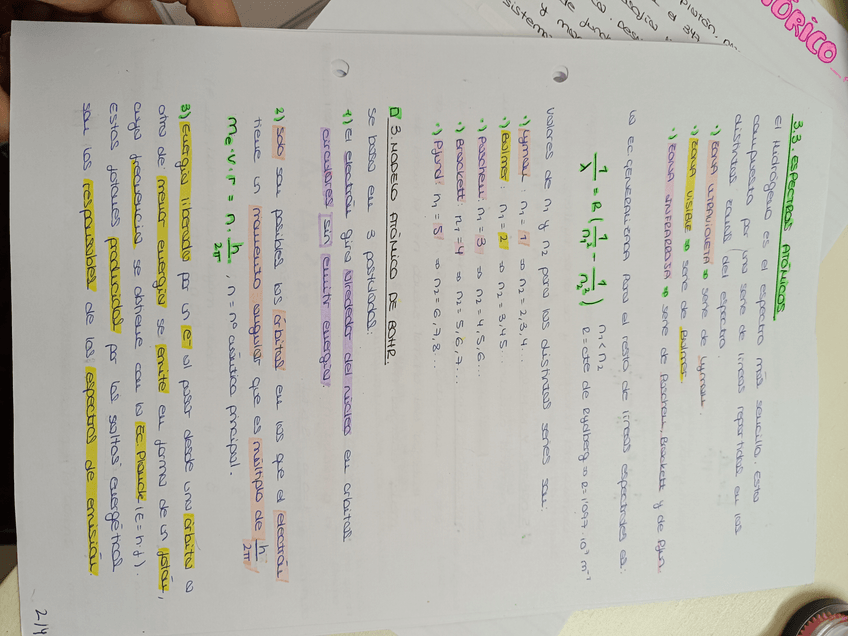 3.3. ESPECTROS ATÓMICOS.
El Hidrógeno es el espectro más sencillo. Esta
compuesto por una serie de líneas repartidas en las
distintas zonas del espectro.
·) ZONA ULTRAVIOLETA ⇒ serie de Lyman.
·) ZONA VISIBLE ⇒ serie de Balmer.
·) ZONA INFRARROJA ⇒ serie de Paschen, Brackett y de Pfun
la ec. generalizada para el resto de líneas espectrales es:
1/λ = R (1/n₁² - 1/n₂²) n₁<n₂
R = cte de Rydberg ⇒ R = 1'097·10⁷ m⁻¹
Valores de n₁ y n₂ para las distintas series son:
·) Lyman: n₁ = 1 ⇒ n₂ = 2,3,4...
·) Balmer: n₁ = 2 ⇒ n₂ = 3,4,5...
·) Paschen: n₁ = 3 ⇒ n₂ = 4,5,6...
·) Brackett: n₁ = 4 ⇒ n₂ = 5,6,7...
·) Pfund: n₁ = 5 ⇒ n₂ = 6,7,8...
3. MODELO ATÓMICO DE BOHR.
se basa en 3 postulados:
1) El electrón gira alrededor del núcleo en órbitas
circulares sin emitir energía.
2) Solo son posibles las órbitas en las que el electrón
tiene un momento angular que es múltiplo de h/2π
me · v · r = n · h/2π , n = nº cuántico principal.
3) Energía liberada por un e⁻ al pasar desde una órbita a
otra de menor energía se emite en forma de un fotón,
cuya frecuencia se obtiene con la Ec. Planck (E = h·f).
Estos fotones producidos por los saltos energéticos
son los responsables de los espectros de emisión.
2/4
TÓRICO
Plutón.
el 347
y
sistem